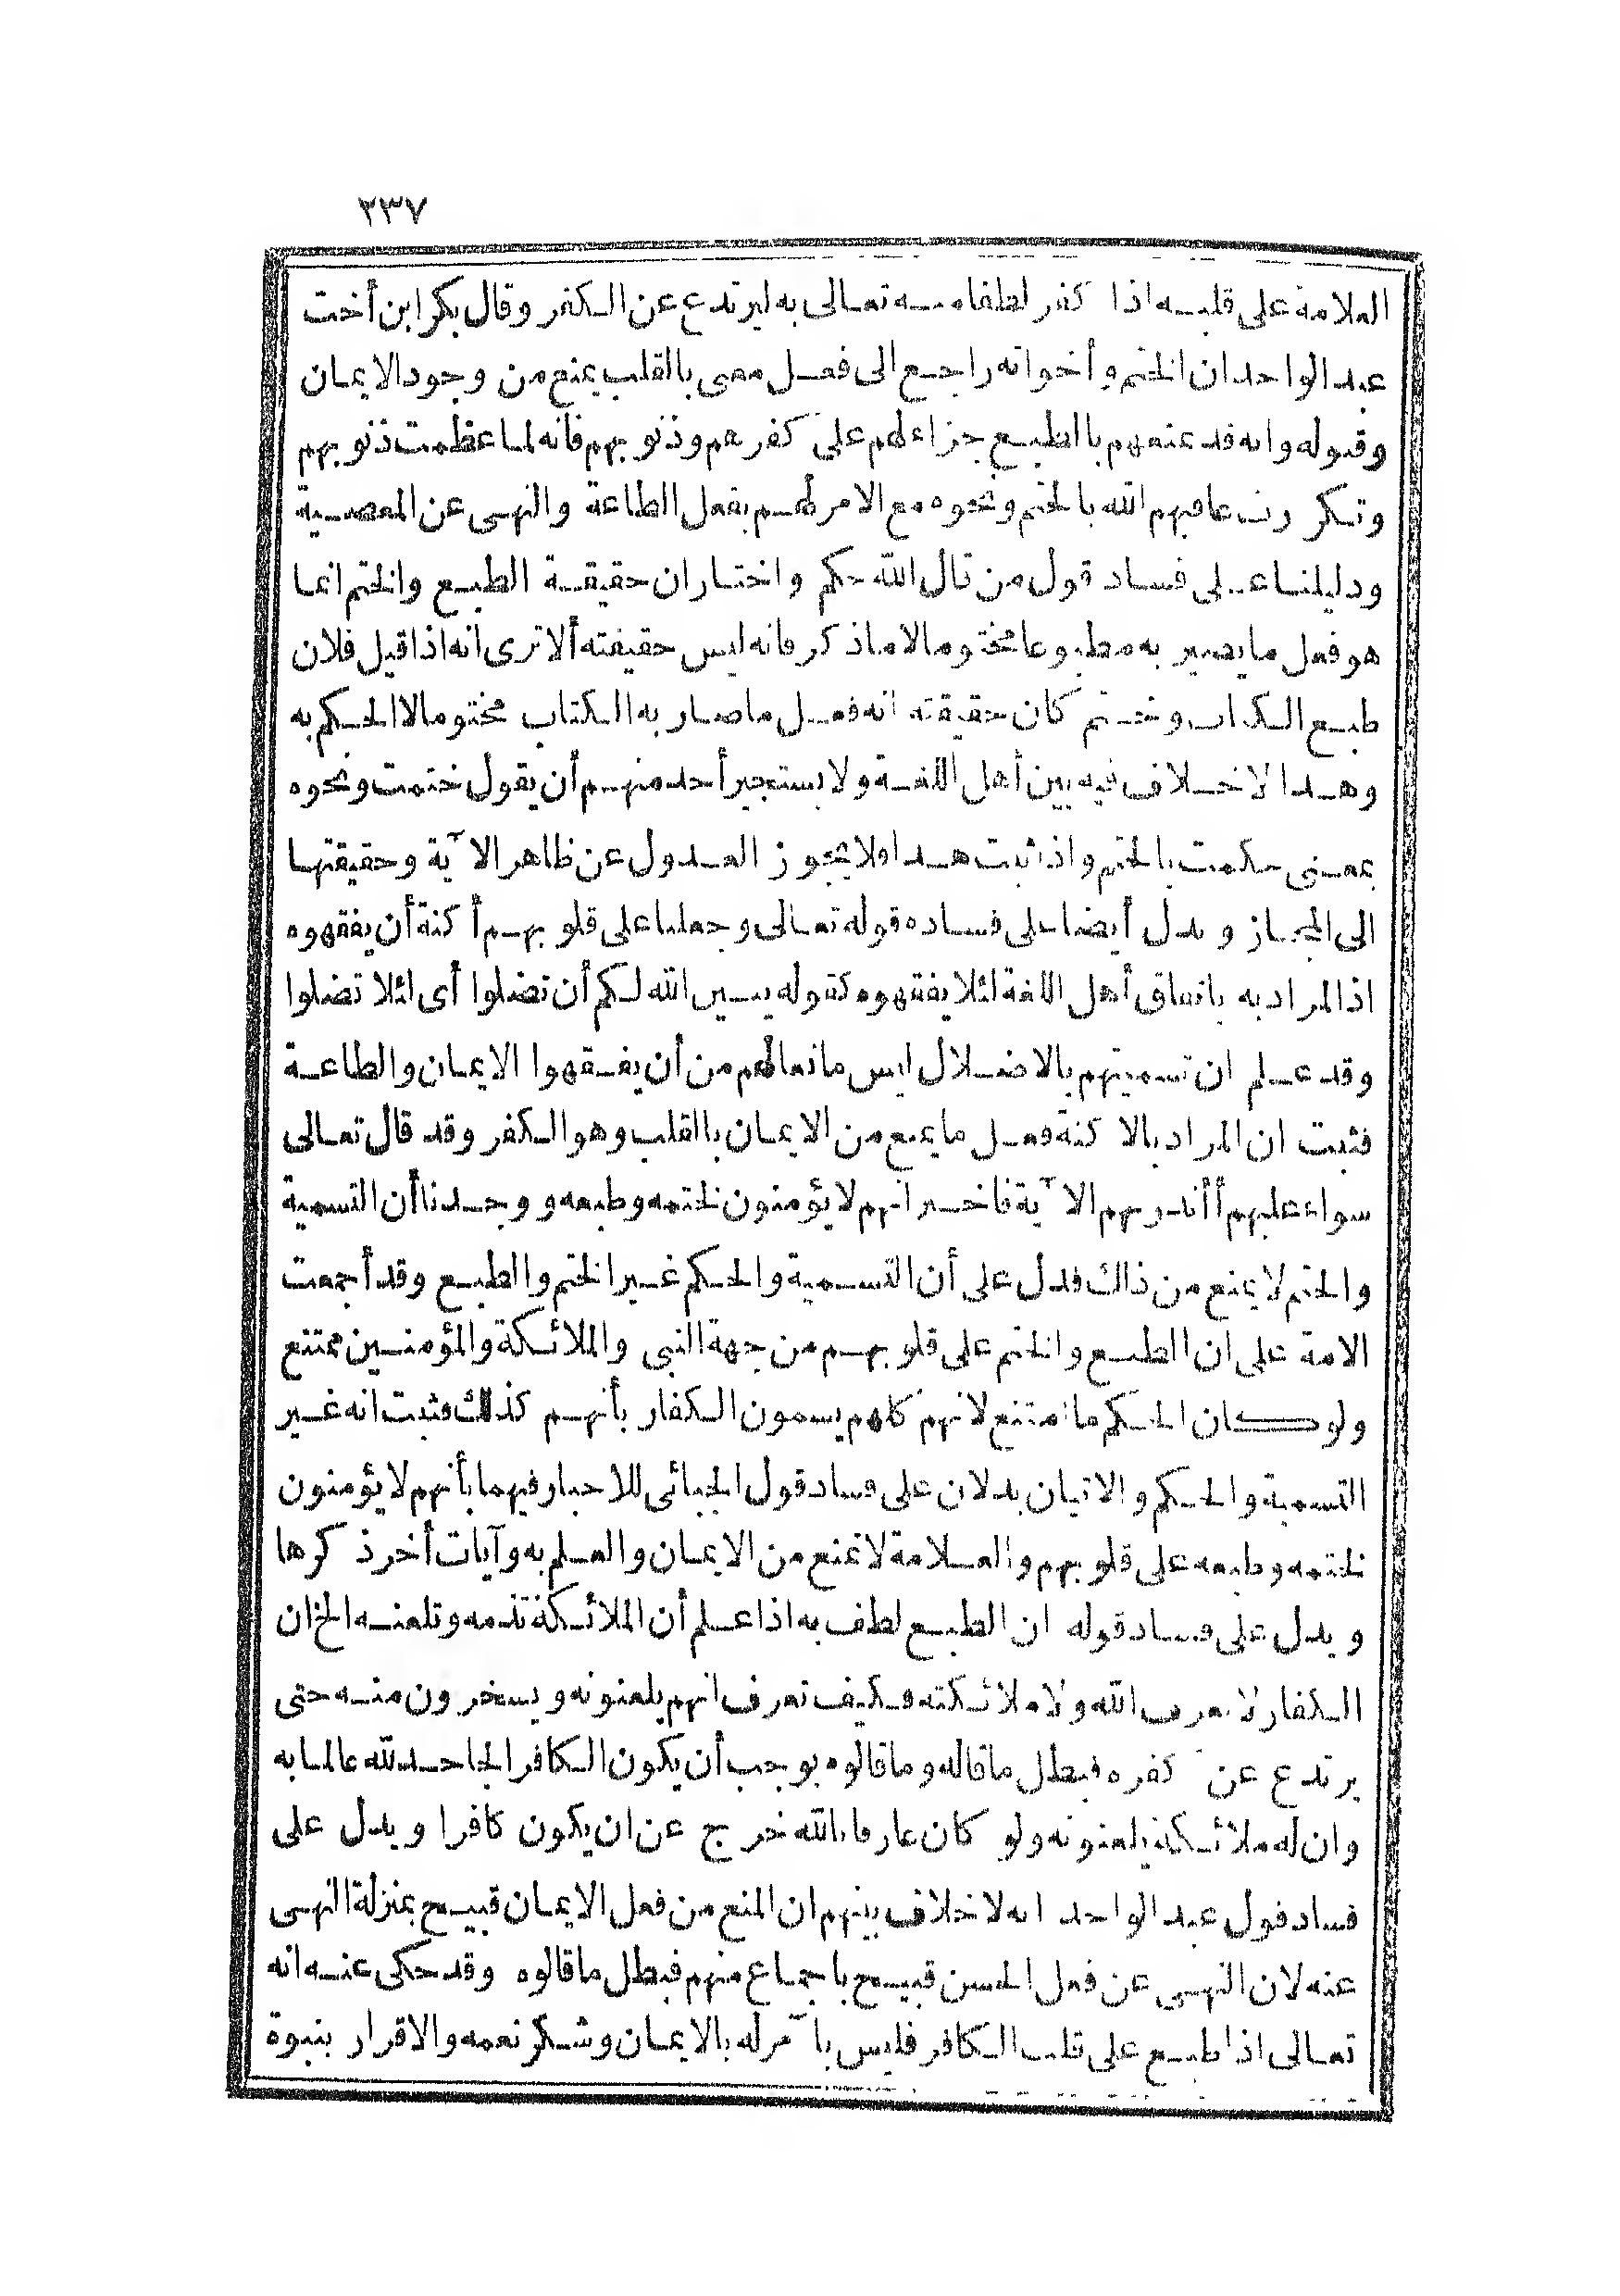 ٢٣٧
العلامة على قلبه اذا كفر لطفا منه تعالى به ليرتدع عن الكفر وقال بكر ابن أخت
عبد الواحد ان الختم وأخواته راجع الى فعل معنى بالقلب يمنع من وجود الايمان
وقبوله وانه قد عنهم بالطبع جزاء لهم على كفرهم وذنوبهم فانه لما عظمت ذنوبهم
وتكررت عاقبهم الله بالختم ونحوه مع الامر لهم بفعل الطاعة والنهى عن المعصية
ودليلنا على فساد قول من قال الله حكم واختار ان حقيقة الطبع والختم انما
هو فعل ما يصير به مطبوعا مختوما لا ما ذكر فانه ليس حقيقته ألا ترى انه اذا قيل فلان
طبع الكتاب وختم كان حقيقته انه فعل ما صار به الكتاب مختوما لا الحكم به
وهذا لا خلاف فيه بين أهل اللغة ولا يستجيز أحد منهم أن يقول ختمت ونحوه
بمعنى حكمت بالختم واذ ثبت هذا فلا يجوز العدول عن ظاهر الآية وحقيقتها
الى المجاز ويدل أيضا على فساده قوله تعالى وجعلنا على قلوبهم أكنة أن يفقهوه
اذ المراد به باتفاق أهل اللغة لئلا يفقهوه كقوله يبين الله لكم أن تضلوا أى لئلا تضلوا
وقد علم ان تسميتهم بالاضلال ليس مانعا لهم من أن يفقهوا الايمان والطاعة
فثبت ان المراد بالاكنة فعل ما يمنع من الايمان بالقلب وهو الكفر وقد قال تعالى
سواء عليهم أأنذرتهم الآية فاخبر انهم لا يؤمنون لختمه وطبعه و وجدنا أن التسمية
والختم لا يمنع من ذلك فدل على أن التسمية والحكم غير الختم والطبع وقد أجمعت
الامة على ان الطبع والختم على قلوبهم من جهة النبى والملائكة والمؤمنين ممتنع
ولو كان الحكم ما امتنع لانهم كلهم يسمون الكفار بأنهم كذلك فثبت انه غير
التسمية والحكم والاتيان يدلان على فساد قول الجبائى للاخبار فيهما بأنهم لا يؤمنون
لختمه وطبعه على قلوبهم والعلامة لا تمنع من الايمان والعلم به وآيات أخر ذكرها
ويدل على فساد قوله ان الطبع لطف به اذا علم أن الملائكة تذمه وتلعنه الخ ان
الكفار لا يعرف الله ولا ملائكته فكيف تعرف انهم يلعنونه ويسخرون منه حتى
يرتدع عن كفره فبطل ما قاله وما قالوه يوجب أن يكون الكافر الجاحد لله عالما به
وان له ملائكة يلعنونه ولو كان عارفا بالله خرج عن ان يكون كافرا ويدل على
فساد قول عبد الواحد انه لا خلاف بينهم ان المنع من فعل الايمان قبيح بمنزلة النهى
عنه لان النهى عن فعل الحسن قبيح باجماع منهم فبطل ما قالوه وقد حكى عنه انه
تعالى اذا طبع على قلب الكافر فليس بآمر له بالايمان وشكر نعمه والاقرار بنبوة